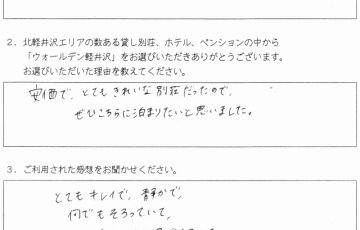 2．北軽井沢エリアの数ある貸し別荘、ホテル、ペンションの中から
「ウォールデン軽井沢」をお選びいただきありがとうございます。
お選びいただいた理由を教えてください。
安価で、とてもきれいな別荘だったので、
ぜひこちらに泊まりたいと思いました。
3．ご利用された感想をお聞かせください。
とてもキレイで、静かで、
何でもそろっていて、